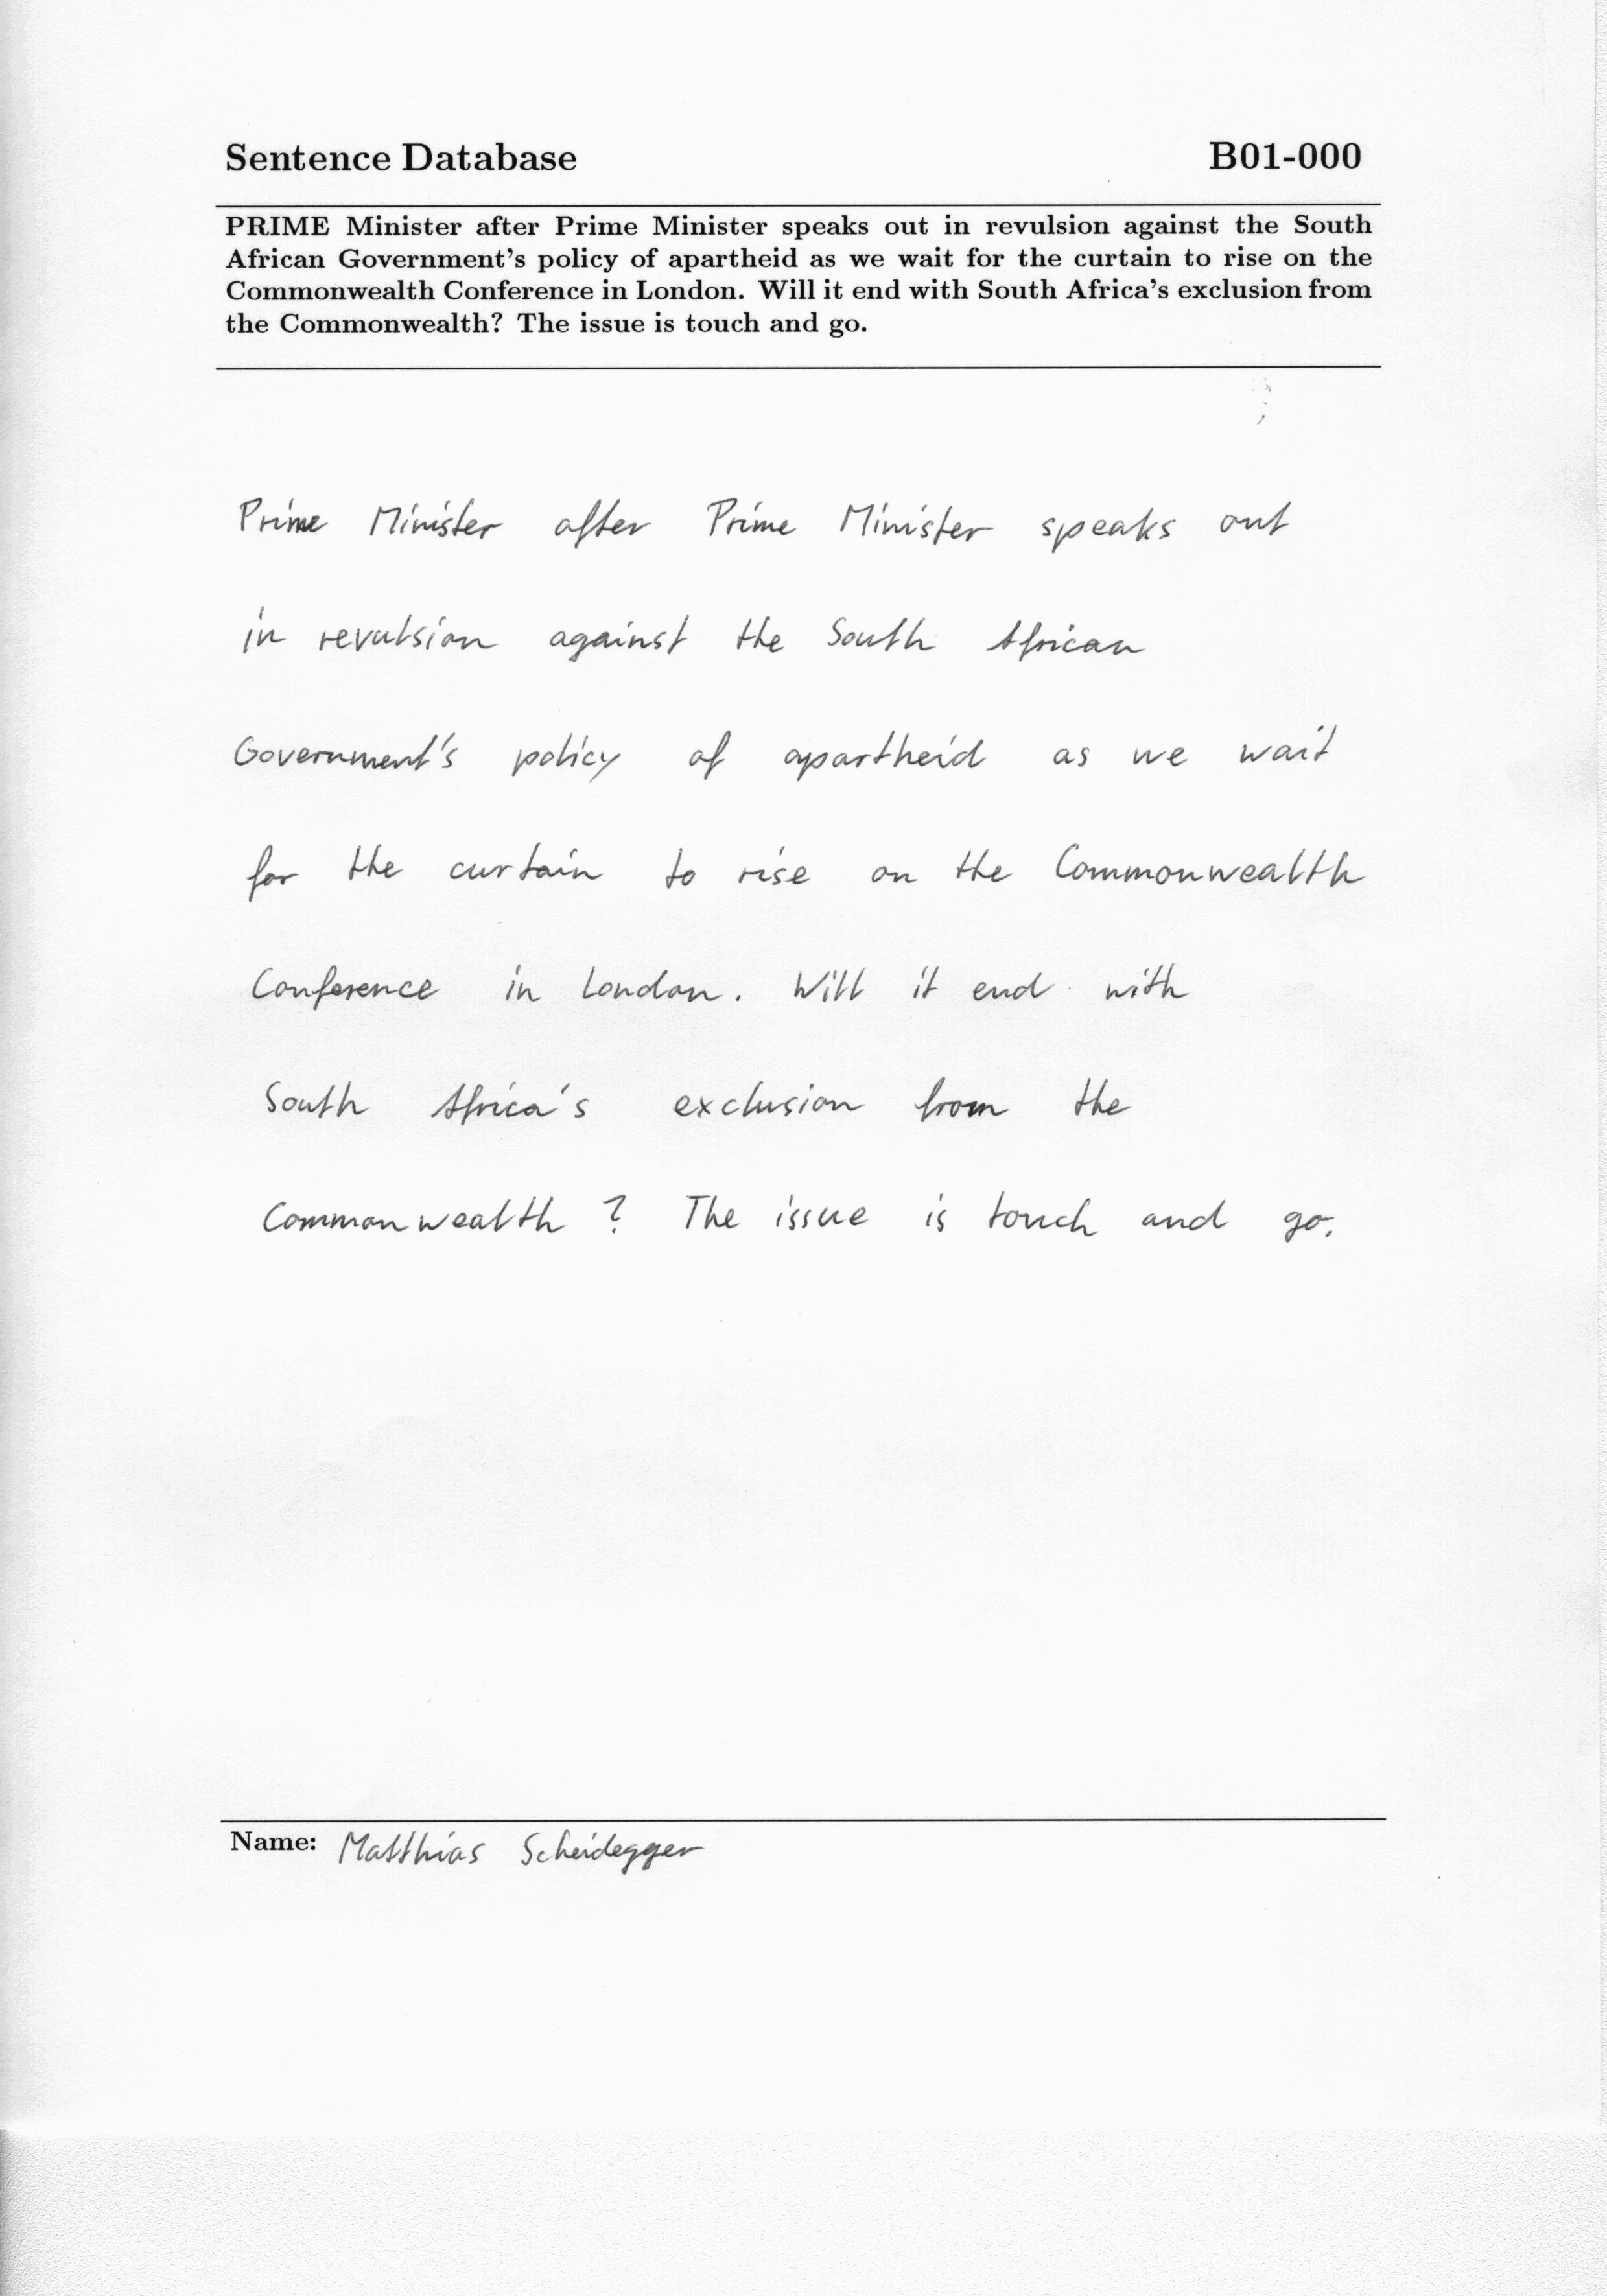 Sentence Database B01-000
PRIME Minister after Prime Minister speaks out in revulsion against the South
African Government's policy of apartheid as we wait for the curtain to rise on the
Commonwealth Conference in London. Will it end with South Africa's exclusion from
the Commonwealth? The issue is touch and go.
Prime Minister after Prime Minister speaks out
in revulsion against the South African
Government's policy of apartheid as we wait
for the curtain to rise on the Commonwealth
Conference in London. Will it end with
South Africa's exclusion from the
Commonwealth? The issue is touch and go.
Name: Matthias Scheidegger